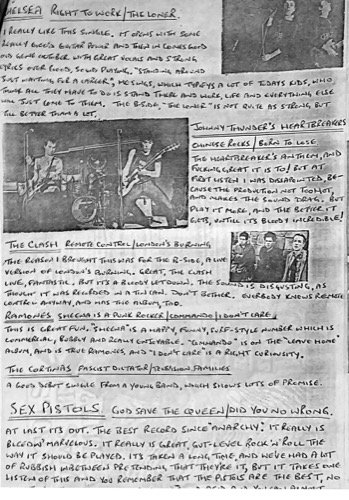 CHELSEA RIGHT TO WORK/THE LONER.
I REALLY LIKE THIS SINGLE. IT OPENS WITH SOME
REALLY GOOD GUITAR POWER AND THEN IN COMES GOOD
OLD GENE OCTOBER WITH GREAT VOCALS AND STRONG
LYRICS OVER GOOD, SOLID PLAYING. "STANDING AROUND
JUST WAITING FOR A CAREER", HE SINGS, WHICH TYPIFYS A LOT OF TODAYS KIDS, WHO
THINK ALL THEY HAVE TO DO IS STAND THERE AND WORK, LIFE AND EVERYTHING ELSE
WILL JUST COME TO THEM. THE BSIDE, "THE LONER" IS NOT QUITE AS STRONG, BUT
STILL BETTER THAN A LOT.
JOHNNY THUNDER'S HEARTBREAKERS
CHINESE ROCKS/BORN TO LOSE.
THE HEARTBREAKER'S ANTHEM, AND
FUCKING GREAT IT IS TO! BUT AT
FIRST LISTEN I WAS DISAPOINTED, BE-
CAUSE THE PRODUCTION NOT TOO HOT,
AND MAKES THE SOUND DRAG. BUT
PLAY IT MORE, AND THE BETTER IT
GETS, UNTIL IT'S BLOODY INCREDIBLE!
THE CLASH REMOTE CONTROL/LONDON'S BURNING
THE REASON I BROUGHT THIS WAS FOR THE B-SIDE, A LIVE
VERSION OF LONDON'S BURNING. GREAT, THE CLASH
LIVE, FANTASTIC. BUT ITS A BLOODY LET DOWN. THE SOUND IS DISGUSTING, AS
THOUGH IT WAS RECORDED IN A TIN CAN. DON'T BOTHER. EVERBODY KNOWS REMOTE
CONTROL ANYWAY, AND HAS THE ALBUM, TOO.
RAMONES SHEENA IS A PUNK ROCKER/COMMANDO/I DON'T CARE
THIS IS GREAT FUN. "SHEENA" IS A HAPPY, FUNNY, SURF-STYLE NUMBER WHICH IS
COMMERCIAL, BUBBLY AND REALLY ENJOYABLE. "COMMANDO" IS ON THE "LEAVE HOME"
ALBUM, AND IS TRUE RAMONES, AND "I DON'T CARE" IS A RIGHT CURIOUSITY.
THE CORTINA'S FASCIST DICTATOR/TELEVISION FAMILIES
A GOOD DEBUT SINGLE FROM A YOUNG BAND, WHICH SHOWS LOTS OF PROMISE.
SEX PISTOLS GOD SAVE THE QUEEN/DID YOU NO WRONG.
AT LAST IT'S OUT. THE BEST RECORD SINCE 'ANARCHY'. IT REALLY IS
BLEEDIN' MARVELOUS. IT REALLY IS GREAT, GUT-LEVEL ROCK 'N' ROLL THE
WAY IT SHOULD BE PLAYED. IT'S TAKEN A LONG TIME, AND WE'VE HAD A LOT
OF RUBBISH INBETWEEN PRETENDING THAT THEY'RE IT, BUT IT TAKES ONE
LISTEN OF THIS AND YOU REMEMBER THAT THE PISTOLS ARE THE BEST, NO